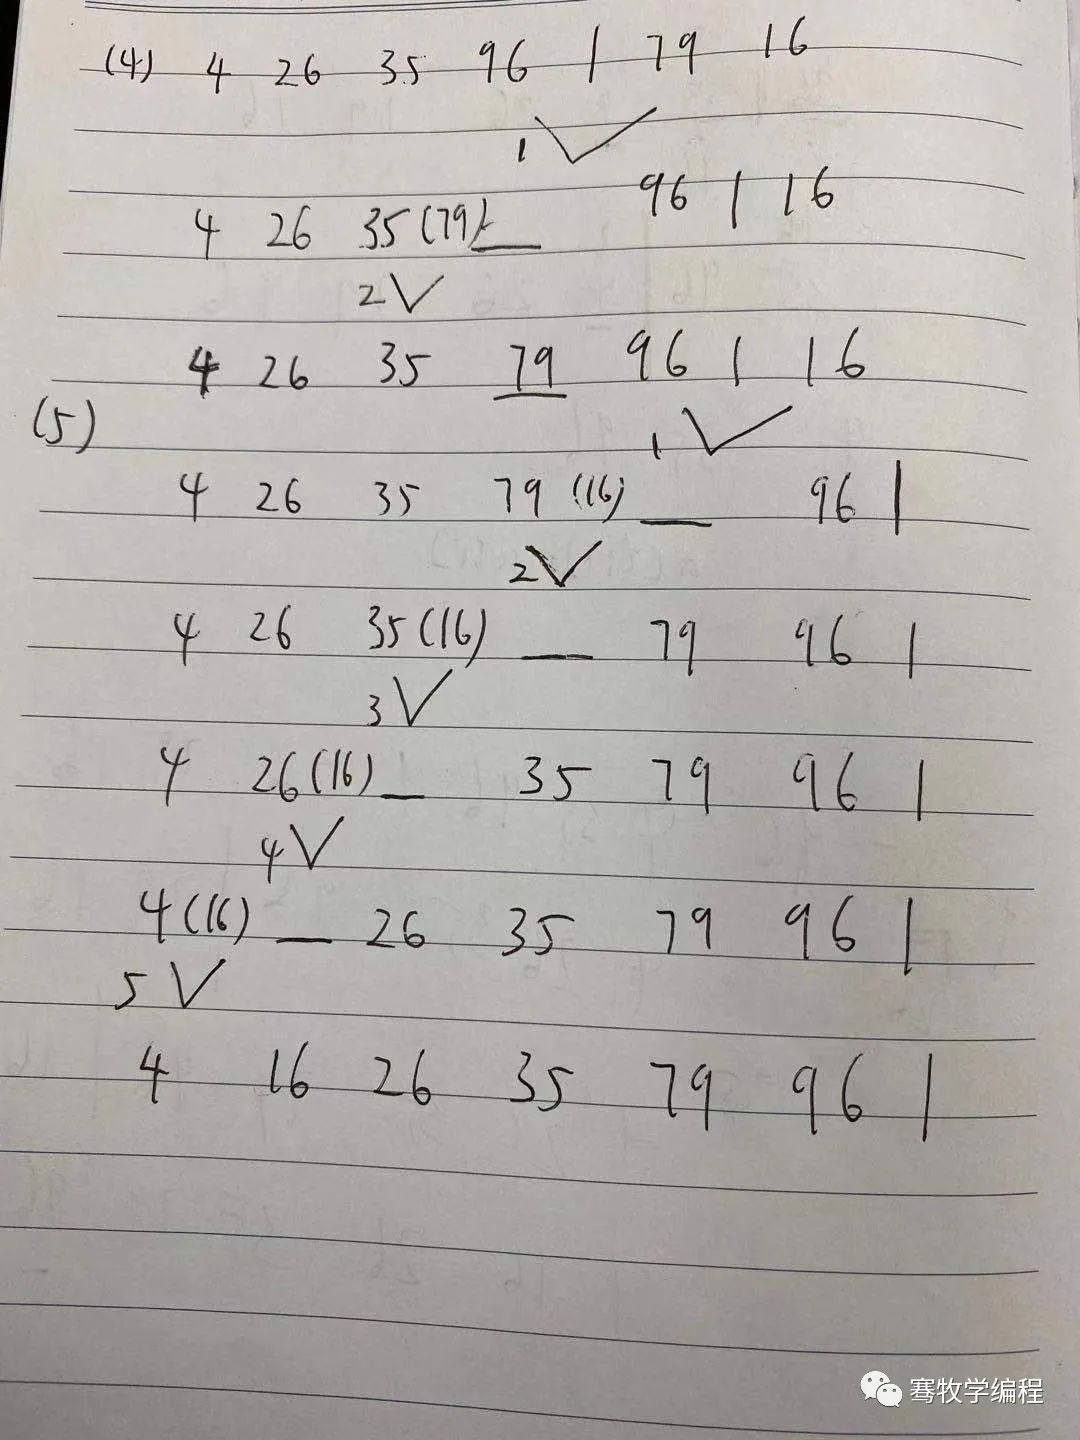 (4) 4 26 35 96 | 79 16
1 ✓
4 26 35 (79) __ 96 | 16
2 ✓
4 26 35 79 96 | 16
(5)
1 ✓
4 26 35 79 (16) __ 96 |
2 ✓
4 26 35 (16) __ 79 96 |
3 ✓
4 26 (16) __ 35 79 96 |
4 ✓
4 (16) __ 26 35 79 96 |
5 ✓
4 16 26 35 79 96 |
骞牧学编程